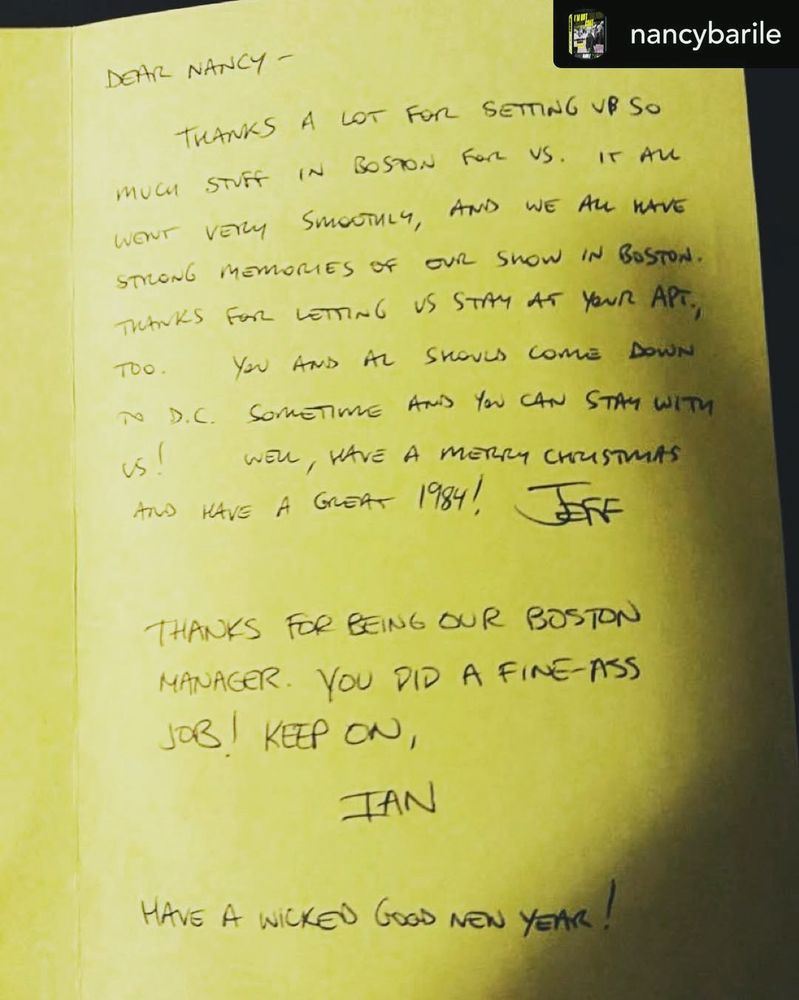 nancybarile
DEAR NANCY -
THANKS A LOT FOR SETTING UP SO
MUCH STUFF IN BOSTON FOR US. IT ALL
WENT VERY SMOOTHLY, AND WE ALL HAVE
STRONG MEMORIES OF OUR SHOW IN BOSTON.
THANKS FOR LETTING US STAY AT YOUR APT.,
TOO. YOU AND AL SHOULD COME DOWN
TO D.C. SOMETIME AND YOU CAN STAY WITH
US! WELL, HAVE A MERRY CHRISTMAS
AND HAVE A GREAT 1984! JEFF
THANKS FOR BEING OUR BOSTON
MANAGER. YOU DID A FINE-ASS
JOB! KEEP ON,
IAN
HAVE A WICKED GOOD NEW YEAR!